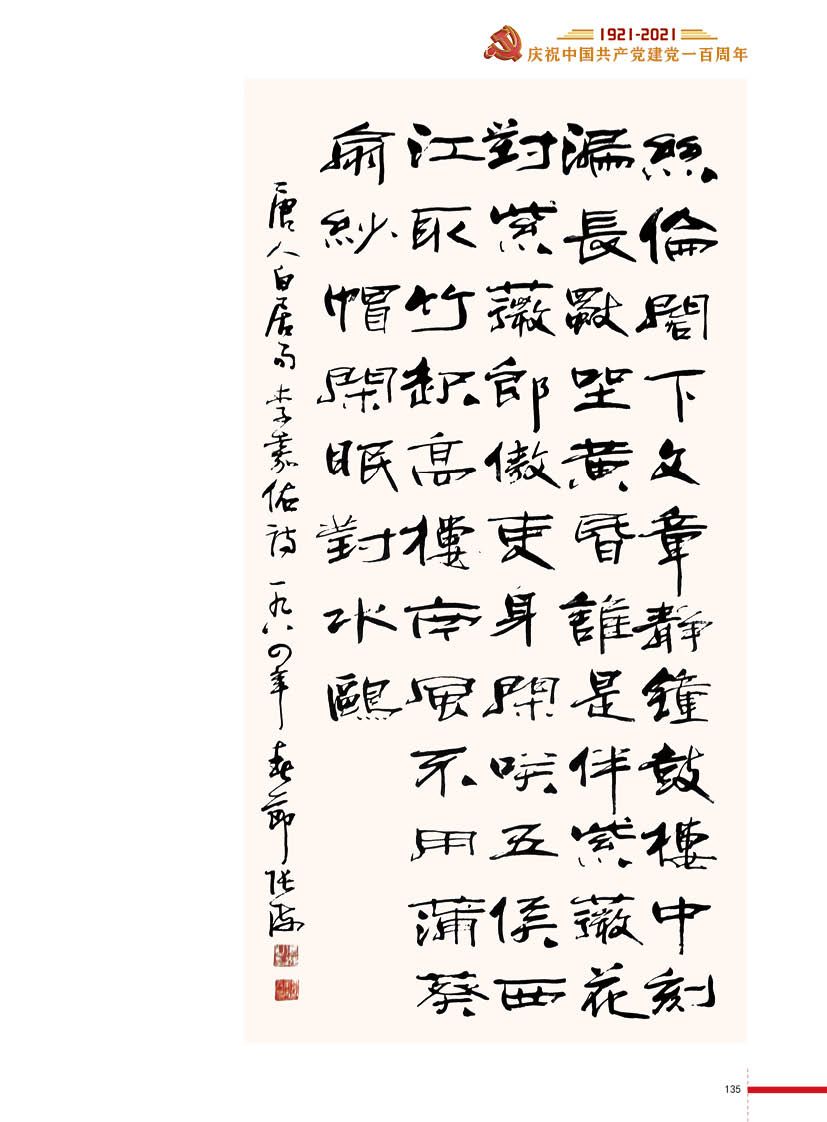 1921-2021
庆祝中国共产党建党一百周年
絲倫閣下文章靜鐘鼓樓中刻
漏長獨坐黃昏誰是伴紫薇花
對紫薇郎傲吏身閑咲五侯西
江取竹起高樓南風不用蒲葵
扇紗帽閑眠對水鷗
唐人白居易李嘉佑詩一九八四年春節張海
135